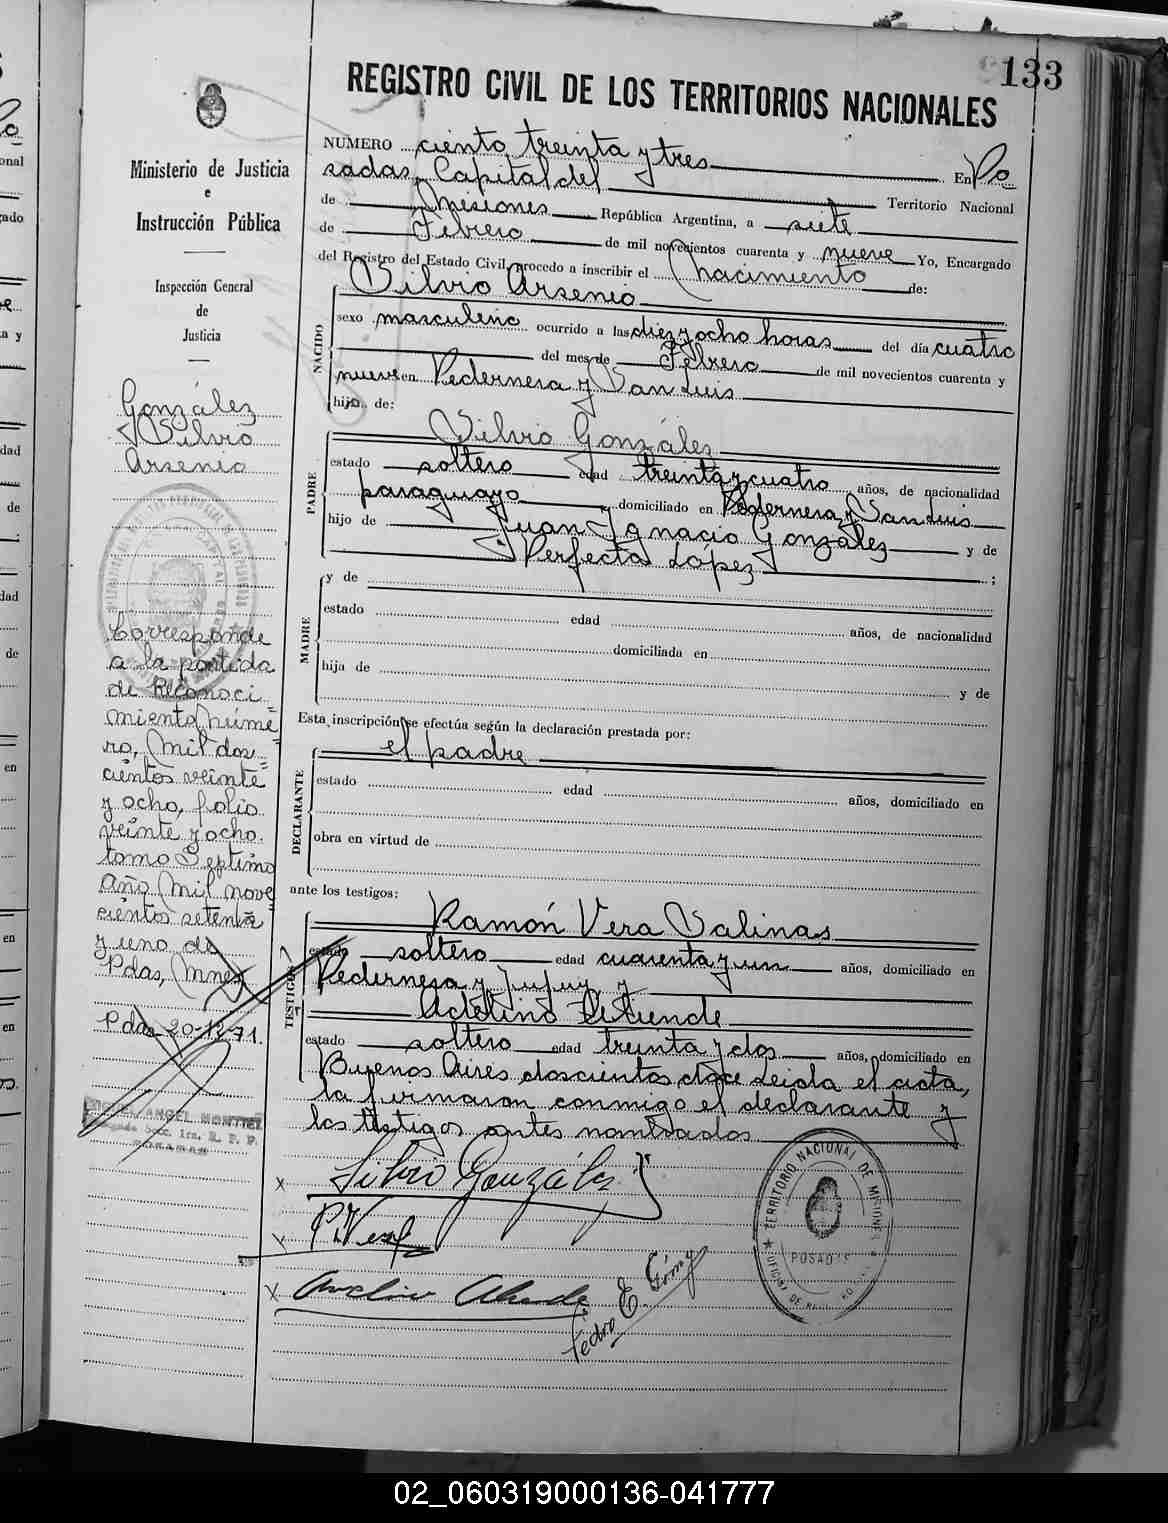 133
REGISTRO CIVIL DE LOS TERRITORIOS NACIONALES
Ministerio de Justicia
e
Instrucción Pública
Inspección General
de
Justicia
González
Silvio
Arsenio
Corresponde
a la partida
de Reconoci=
miento núme=
ro, mil dos=
cientos veinte=
y ocho, folio
veinte y ocho.
tomo Septimo
Año mil nove=
cientos setenta
y uno de
Pdas, Mnes
Pdas 20-12-71.
ANGEL MONTIEL
NUMERO ciento treinta y tres En Po
sadas, Capital del Territorio Nacional
de Misiones República Argentina, a siete
de Febrero de mil novecientos cuarenta y nueve Yo, Encargado
del Registro del Estado Civil, procedo a inscribir el nacimiento de:
NACIDO
Silvio Arsenio
sexo masculino ocurrido a las diez y ocho horas del día cuatro
del mes de Febrero de mil novecientos cuarenta y
nueve en Pedernera y San Luis
hijo de:
PADRE
Silvio González
estado soltero edad treinta y cuatro años, de nacionalidad
paraguayo domiciliado en Pedernera y San Luis
hijo de Juan Ignacio González y de
Perfecta López ;
MADRE
y de
estado edad años, de nacionalidad
domiciliada en
hija de y de
Esta inscripción se efectúa según la declaración prestada por:
DECLARANTE
el padre
estado edad años, domiciliado en
obra en virtud de
ante los testigos:
TESTIGOS
Ramón Vera Salinas
estado soltero edad cuarenta y un años, domiciliado en
Pedernera y Jujuy y
estado soltero edad treinta y dos años, domiciliado en
Buenos Aires doscientos doce Leida el acta,
la firmaron conmigo el declarante y
los testigos antes nombrados
x Silvio González
Pedro E. Gómez
TERRITORIO NACIONAL DE MISIONES
POSADAS
02_060319000136-041777